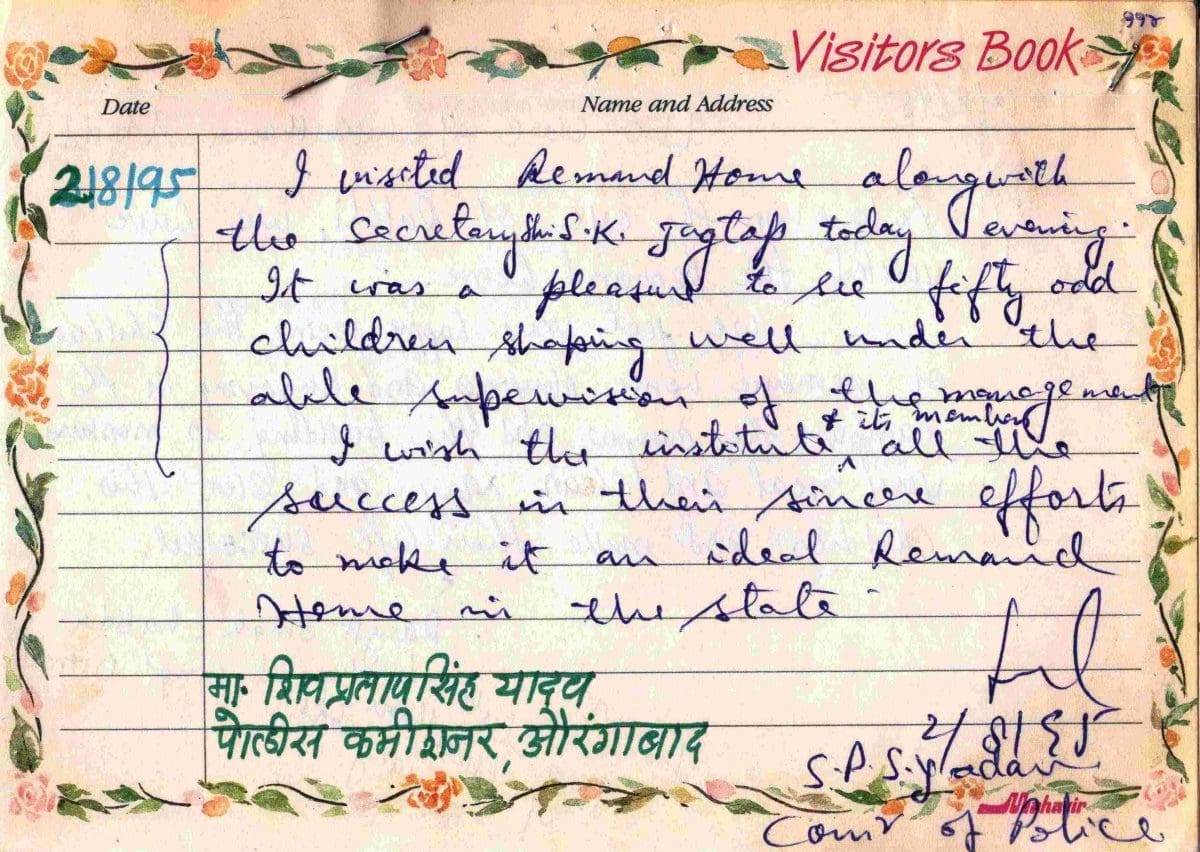 ११२
Visitors Book
Date
Name and Address
2/8/95
I visited Remand Home alongwith
the Secretary Shi. S.K. Jagtap today evening.
It was a pleasure to see fifty odd
children shaping well under the
able supervision of the management
& its members
I wish the institute, all the
success in their sincere efforts
to make it an ideal Remand
Home in the state
मा. शिवप्रतापसिंह यादव
पोलीस कमीशनर, औरंगाबाद
२/८/९५
S.P.S. Yadav
Mahavir
Comr of Police